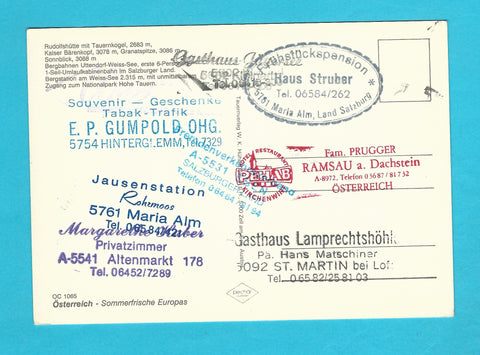 Rudolfshütte mit Tauernkogel, 2683 m,
Kaiser Bärenkopf, 3078 m, Granatspitze, 3086 m
Sonnblick, 3088 m
Bergbahnen Uttendorf-Weiss-See, erste 6-Personen-
1-Seil-Umlaufkabinenbahn im Salzburger Land.
Bergstation am Weiss-See 2.315 m, mit unmittelbarem
Zugang zum Nationalpark Hohe Tauern.
Gasthaus
Frühstückspension
Haus Struber
Tel. 06584/262
5761 Maria Alm, Land Salzburg
Souvenir — Geschenke
Tabak-Trafik
E. P. GUMPOLD, OHG.
5754 HINTERGLEMM, Tel. 7329
A-5531
Telefon 0 64 64
HOTEL RESTAURANT
PEHAB
KIRCHENWIRT
Fam. PRUGGER
RAMSAU a. Dachstein
A-8972, Telefon 03687/81732
ÖSTERREICH
Jausenstation
Rohrmoos
5761 Maria Alm
Tel. 06584/
Margarethe Huber
Privatzimmer
A-5541 Altenmarkt 178
Tel. 06452/7289
Gasthaus Lamprechtshöhle
Pä. Hans Matschiner
5092 ST. MARTIN bei Lofer
Tel. 0 65 82/25 81 03
OC 1065
Österreich - Sommerfrische Europas